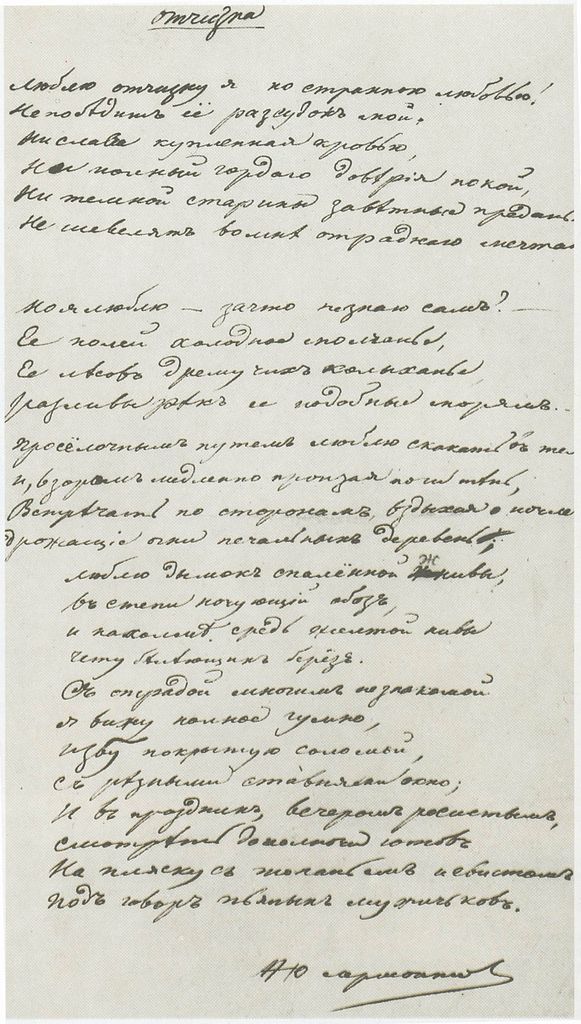 Отчизна
Люблю отчизну я но странною любовью!
Непобѣдитъ её разсудокъ мой.
Ни слава купленная кровью,
Ни полный гордаго довѣрія покой,
Ни темной старины завѣтные предань
Не шевелятъ во мнѣ отраднаго мечта
Но я люблю — за что незнаю самъ? —
Ее полей холодное молчанье,
Ее лѣсовъ дремучихъ колыханье
Разливы рѣкъ ее подобные морямъ...
Просёлочнымъ путемъ люблю скакать въ те
И, взоромъ медленно пронзая ночи тѣнь,
Встрѣчать по сторонамъ, вздыхая о ночле
Дрожащіе огни печальныхъ деревень;
Люблю дымокъ спалённой жнивы,
Въ степи ночующій обозъ,
И на холмѣ средь желтой нивы
Чету бѣлѣющихъ берёзъ.
Съ отрадой многимъ незнакомой
Я вижу полное гумно,
Избу покрытую соломой,
Съ рѣзными ставнями окно;
И въ праздникъ, вечеромъ росистымъ,
Смотрѣть дополночи готовъ
На пляску съ топаньемъ и свистомъ
Подъ говоръ пьяныхъ мужичковъ.
М Ю Лермонтов